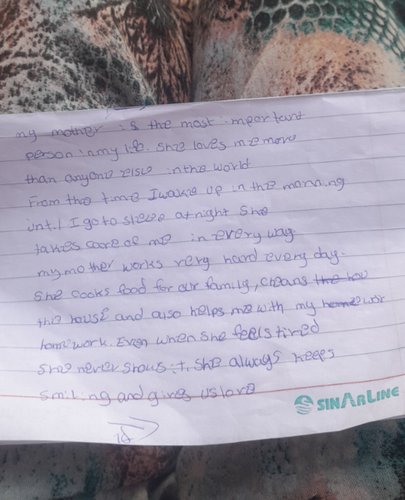 my mother is the most important
person in my life. She loves me more
than anyone else in the world
From the time I wake up in the morning
until I go to sleep at night she
takes care of me in every way
my mother works very hard every day.
She cooks food for our family, cleans the hou
the house and also helps me with my homewor
homework. Even when she feels tired
She never shows it. She always keeps
smiling and gives us love
SINARLINE